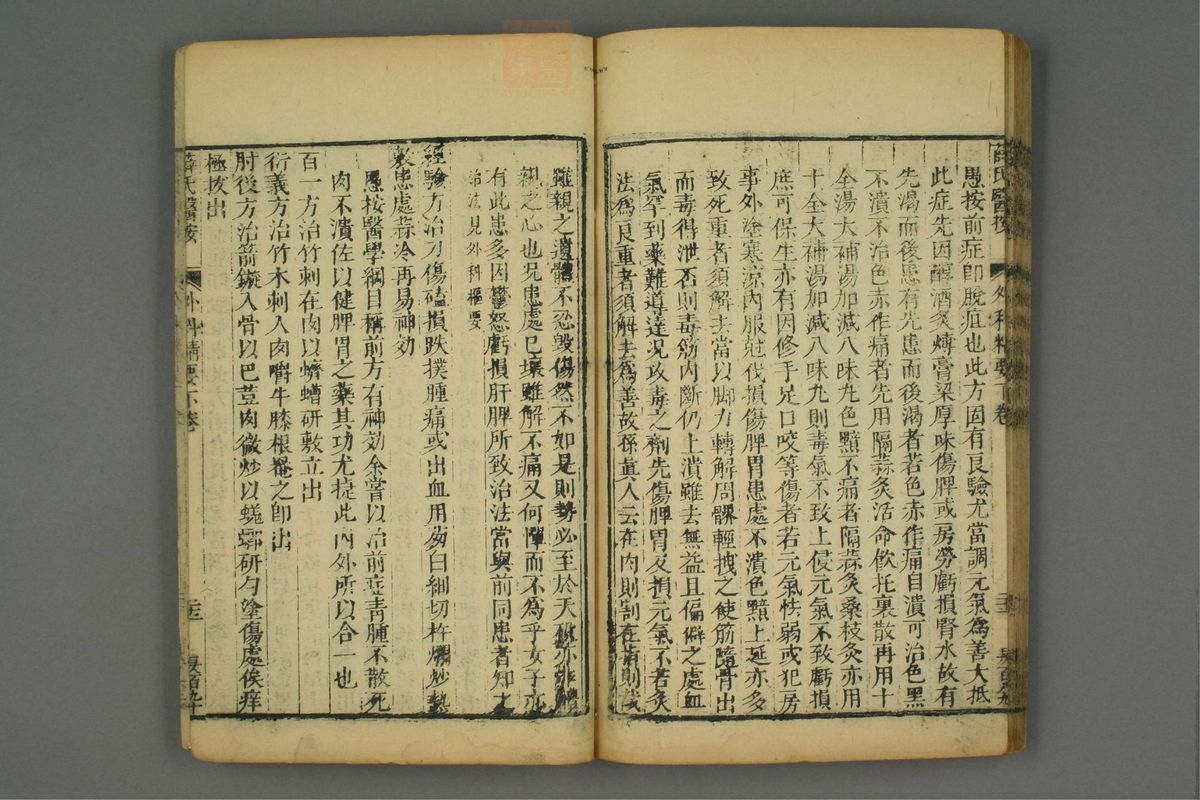 薛氏醫按 外科精要下卷
愚按前症即脫疽也此方固有良驗尤當調元氣為善大抵
此症先因醇酒炙煿膏粱厚味傷脾或房勞虧損腎水故有
先渴而後患有先患而後渴者若色赤作痛自潰可治色黑
不潰不治色赤作痛者先用隔蒜灸活命飲托裏散再用十
全湯大補湯加減八味丸色黯不痛者隔蒜灸桑枝灸亦用
十全大補湯加減八味丸則毒氣不致上侵元氣不致虧損
庶可保生亦有因修手足口咬等傷者若元氣怯弱或犯房
事外塗寒涼內服尅伐損傷脾胃患處不潰色黯上延亦多
致死重者須解去當以脚力轉解周髁輕拽之使筋隨骨出
而毒得泄否則毒筋內斷仍上潰雖去無益且偏僻之處血
氣罕到藥難導達況攻毒之劑先傷脾胃又損元氣不若灸
法為良重者須解去為善故孫眞人云在肉則割在指則截
雖親之遺體不忍毀傷然不如是則勢必至於夭
親之心也況患處已壞雖解不痛又何憚而不為乎女子亦
有此患多因鬱怒虧損肝脾所致治法當與前同患者知之
治法見外科樞要
經驗方治刀傷磕損跌撲腫痛或出血用葱白細切杵爛炒熱
敷患處葱冷再易神効
愚按醫學綱目稱前方有神効余嘗以治前症青腫不散死
肉不潰佐以健脾胃之藥其功尤捷此內外所以合一也
百一方治竹刺在肉以蠐螬研敷立出
衍義方治竹木刺入肉嚼牛膝根罨之即出
肘後方治箭鏃入骨以巴荳肉微炒以蜣螂研勻塗傷處俟痒
極拔出
薛氏醫按 外科精要下卷